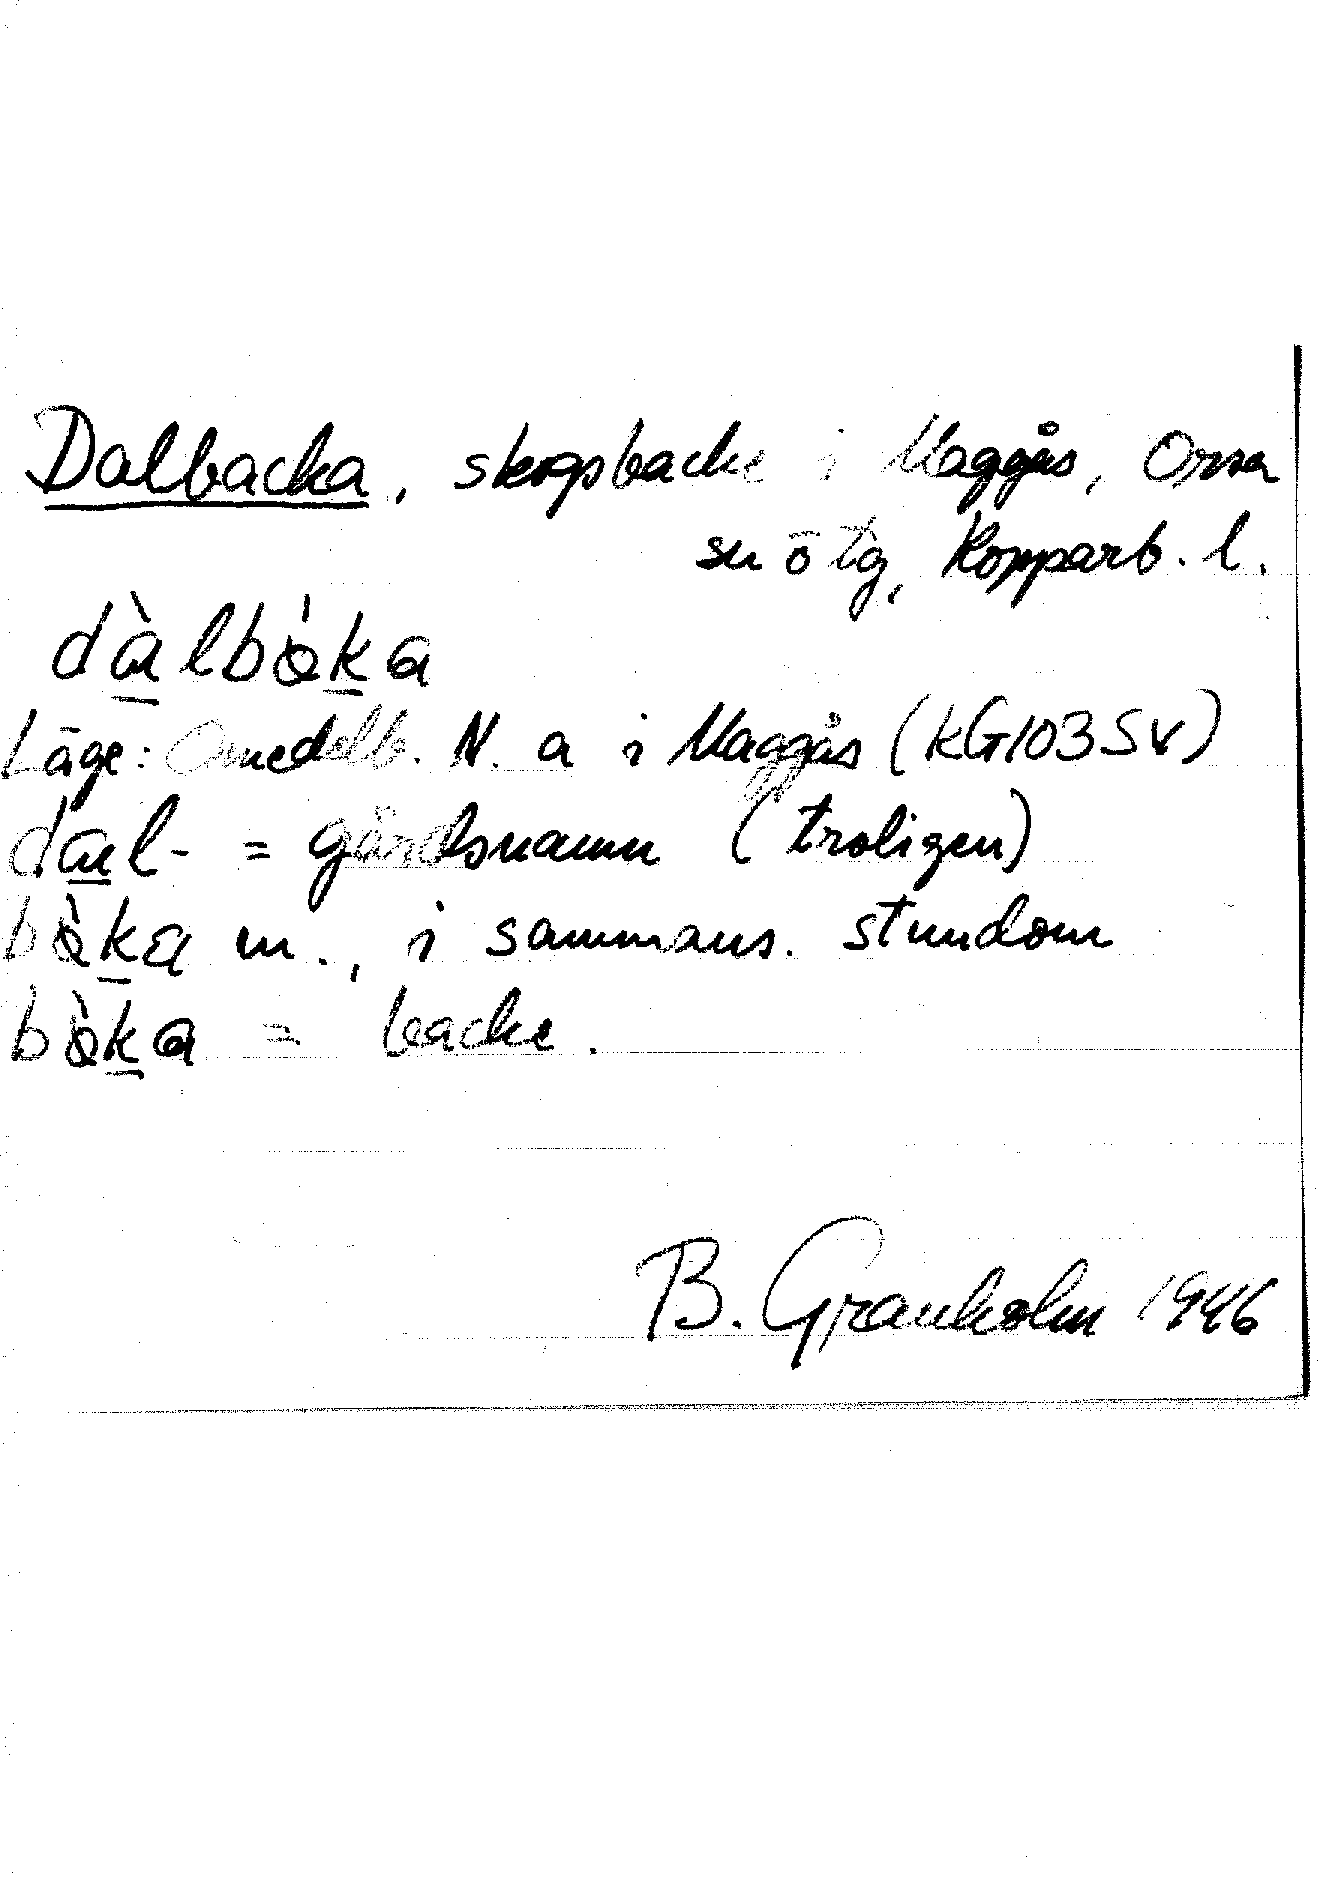 Dalbacka, skogsbacke i Maggås, Orsa
sn ötg, Kopparb. l.
dàlbàka
Läge: Omedelb. N. a i Maggås (kG103SV)
dal- = gårdsnamn (troligen)
bàka m., i sammans. stundom
bàka = backe.
B. Granholm 1946